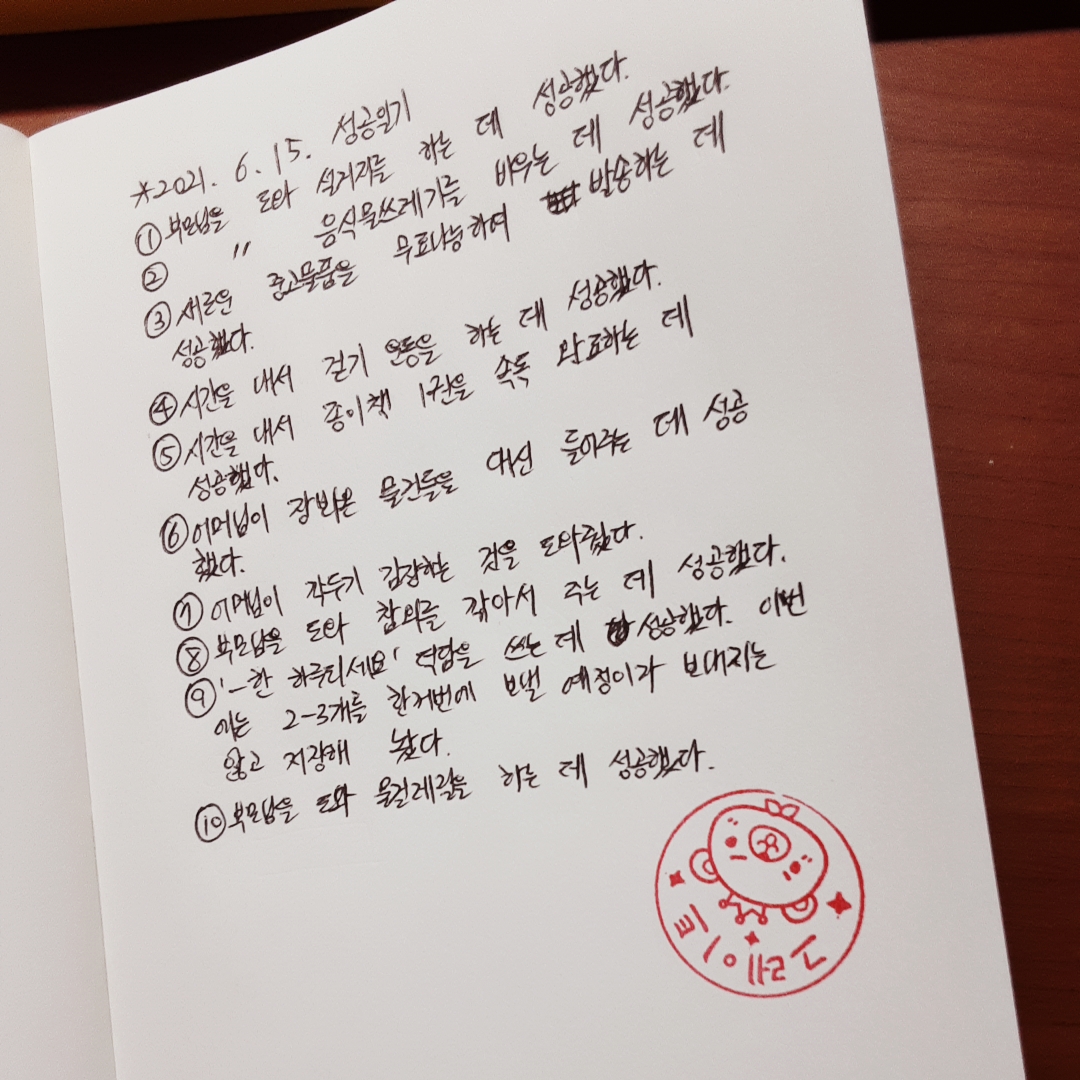 *2021. 6. 15. 성공일기
① 부모님을 도와 설거지를 하는 데 성공했다.
② 〃 음식물쓰레기를 비우는 데 성공했다.
③ 새로운 중고물품을 무료나눔하여 발송하는 데
성공했다.
④ 시간을 내서 걷기 운동을 하는 데 성공했다.
⑤ 시간을 내서 종이책 1권을 속독 완료하는 데
성공했다.
⑥ 어머님이 장봐온 물건들을 대신 들어주는 데 성공
했다.
⑦ 어머님이 깍두기 김장하는 것을 도와줬다.
⑧ 부모님을 도와 참외를 깎아서 주는 데 성공했다.
⑨ '–한 하루되세요' 덕담을 쓰는 데 성공했다. 이번
에는 2-3개를 한꺼번에 보낼 예정이라 보내지는
않고 저장해 놨다.
⑩ 부모님을 도와 물걸레질을 하는 데 성공했다.